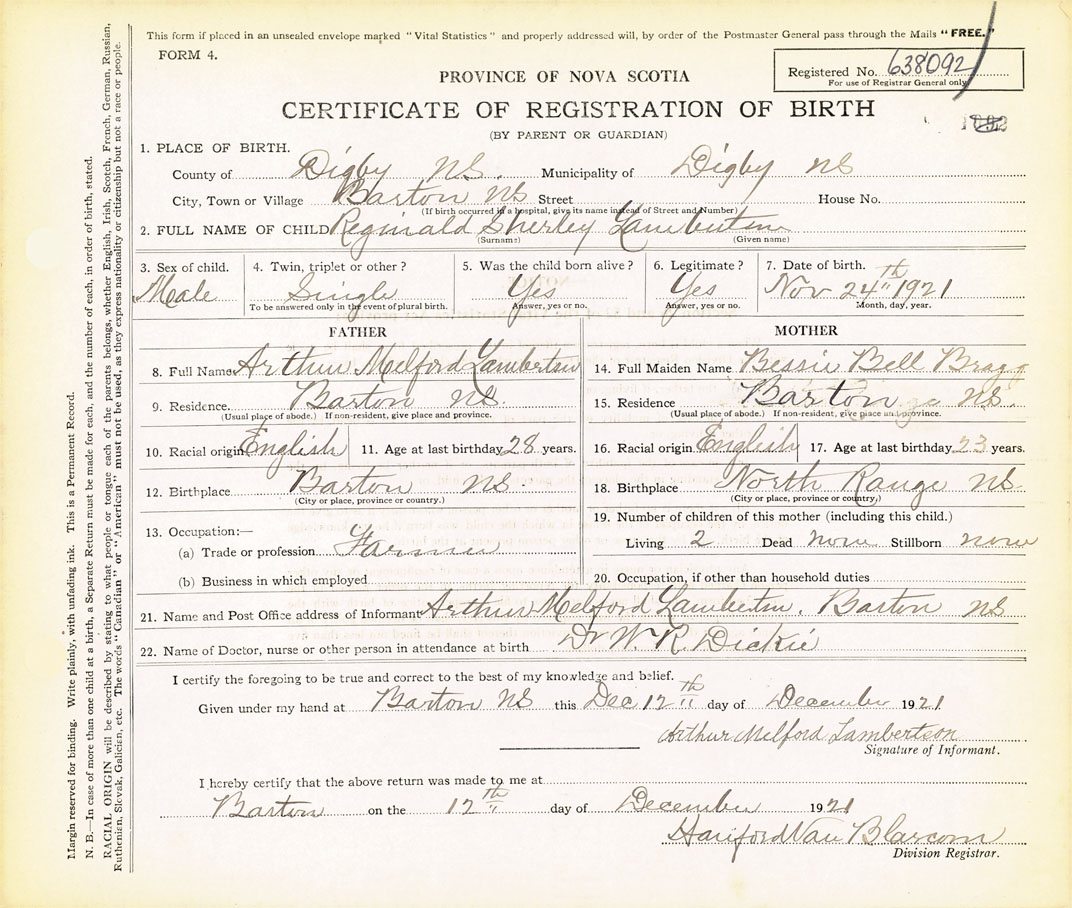 This form if placed in an unsealed envelope marked "Vital Statistics" and properly addressed will, by order of the Postmaster General pass through the Mails "FREE."
FORM 4.
Registered No. 638092
For use of Registrar General only
PROVINCE OF NOVA SCOTIA
CERTIFICATE OF REGISTRATION OF BIRTH
(BY PARENT OR GUARDIAN)
1. PLACE OF BIRTH.
County of Digby NS. Municipality of Digby NS
City, Town or Village Barton NS Street House No.
(If birth occurred in a hospital, give its name instead of Street and Number)
2. FULL NAME OF CHILD Reginald Sherley Lambertson
(Surname) (Given name)
3. Sex of child. 4. Twin, triplet or other? 5. Was the child born alive? 6. Legitimate? 7. Date of birth.
Male Single Yes Yes Nov 24th 1921
To be answered only in the event of plural birth. Answer, yes or no. Answer, yes or no. Month, day, year.
FATHER MOTHER
8. Full Name Arthur Melford Lambertson 14. Full Maiden Name Bessie Bell Bragg
9. Residence. Barton NS 15. Residence Barton NS.
(Usual place of abode.) If non-resident, give place and province. (Usual place of abode.) If non-resident, give place and province.
10. Racial origin English 11. Age at last birthday 28 years. 16. Racial origin English 17. Age at last birthday 23 years.
12. Birthplace Barton NS. 18. Birthplace North Range NS.
(City or place, province or country.) (City or place, province or country.)
13. Occupation:— 19. Number of children of this mother (including this child.)
(a) Trade or profession Farmer Living 2 Dead none Stillborn none
(b) Business in which employed 20. Occupation, if other than household duties
21. Name and Post Office address of Informant Arthur Melford Lambertson. Barton NS
22. Name of Doctor, nurse or other person in attendance at birth Dr W. R. Dickie
I certify the foregoing to be true and correct to the best of my knowledge and belief.
Given under my hand at Barton NS this Dec 12th day of December 1921
Arthur Melford Lambertson
Signature of Informant.
I hereby certify that the above return was made to me at
Barton on the 12th day of December 1921
Hanford Van Blarcom
Division Registrar.
Margin reserved for binding. Write plainly, with unfading ink. This is a Permanent Record.
N. B.—In case of more than one child at a birth, a Separate Return must be made for each, and the number of each, in order of birth, stated.
RACIAL ORIGIN will be described by stating to what people or tongue each of the parents belongs, whether English, Irish, Scotch, French, German, Russian,
Ruthenian, Slovak, Galician, etc. The words "Canadian" or "American" must not be used, as they express nationality or citizenship but not a race or people.